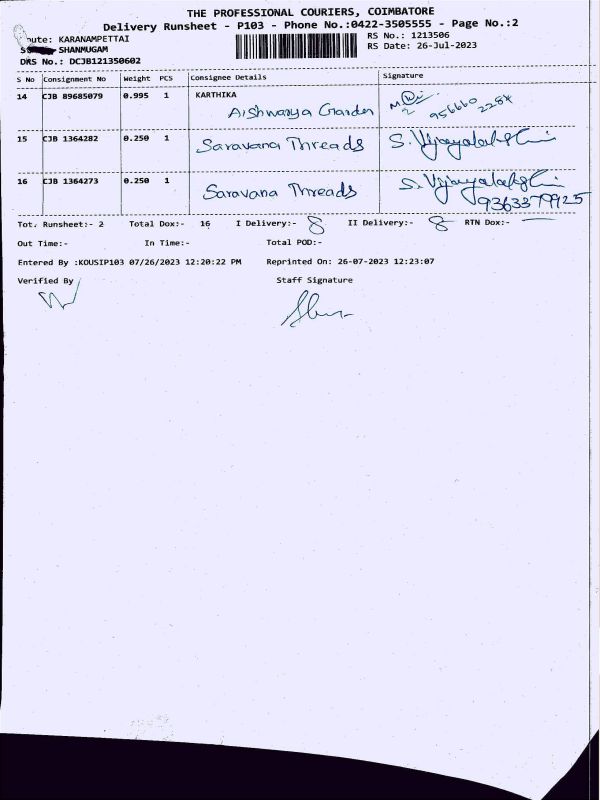 THE PROFESSIONAL COURIERS, COIMBATORE
Delivery Runsheet - P103 - Phone No.:0422-3505555 - Page No.:2
oute: KARANAMPETTAI
RS No.: 1213506
SHANMUGAM
RS Date: 26-Jul-2023
DRS No.: DCJB121350602
S No Consignment No Weight PCS Consignee Details Signature
14 CJB 89685079 0.995 1 KARTHIKA
Aishwarya Garden
15 CJB 1364282 0.250 1 Saravana Threads S. Vijayalakshmi
16 CJB 1364273 0.250 1 Saravana Threads S. Vijayalakshmi
9363379925
Tot. Runsheet:- 2 Total Dox:- 16 I Delivery:- 8 II Delivery:- 8 RTN Dox:-
Out Time:- In Time:- Total POD:-
Entered By :KOUSIP103 07/26/2023 12:20:22 PM Reprinted On: 26-07-2023 12:23:07
Verified By Staff Signature